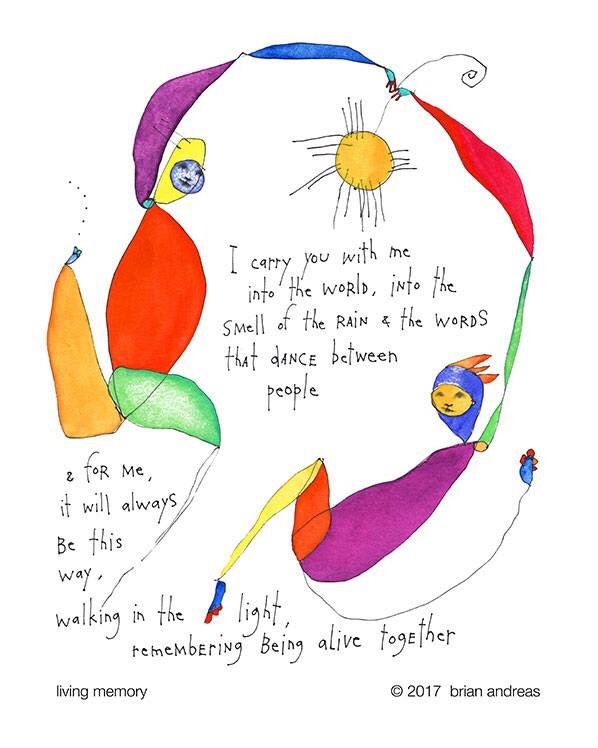 I carry you with me
into the world, into the
smell of the RAIN & the WORDS
that dANCE between
people
& foR Me,
it will always
Be this
way,
walking in the light,
remembering Being alive together
living memory
© 2017 brian andreas